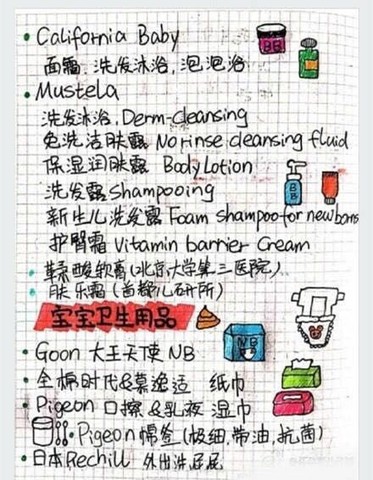 California Baby
面霜.洗发沐浴.泡泡浴
Mustela
洗发沐浴.Derm-cleansing
免洗洁肤露 No rinse cleansing fluid
保湿润肤露 Body Lotion
洗发露 Shampooing
新生儿洗发露 Foam shampoo for newborns
护臀霜 Vitamin barrier Cream
酸软膏(北京大学第三医院)
肤乐霜(首都儿研所)
宝宝卫生用品
Goon 大王天使 NB
NB
全棉时代&慕逸适 纸巾
Pigeon 口擦&乳液湿巾
Pigeon棉签(极细,带油,抗菌)
日本Rechill 外出洗屁屁